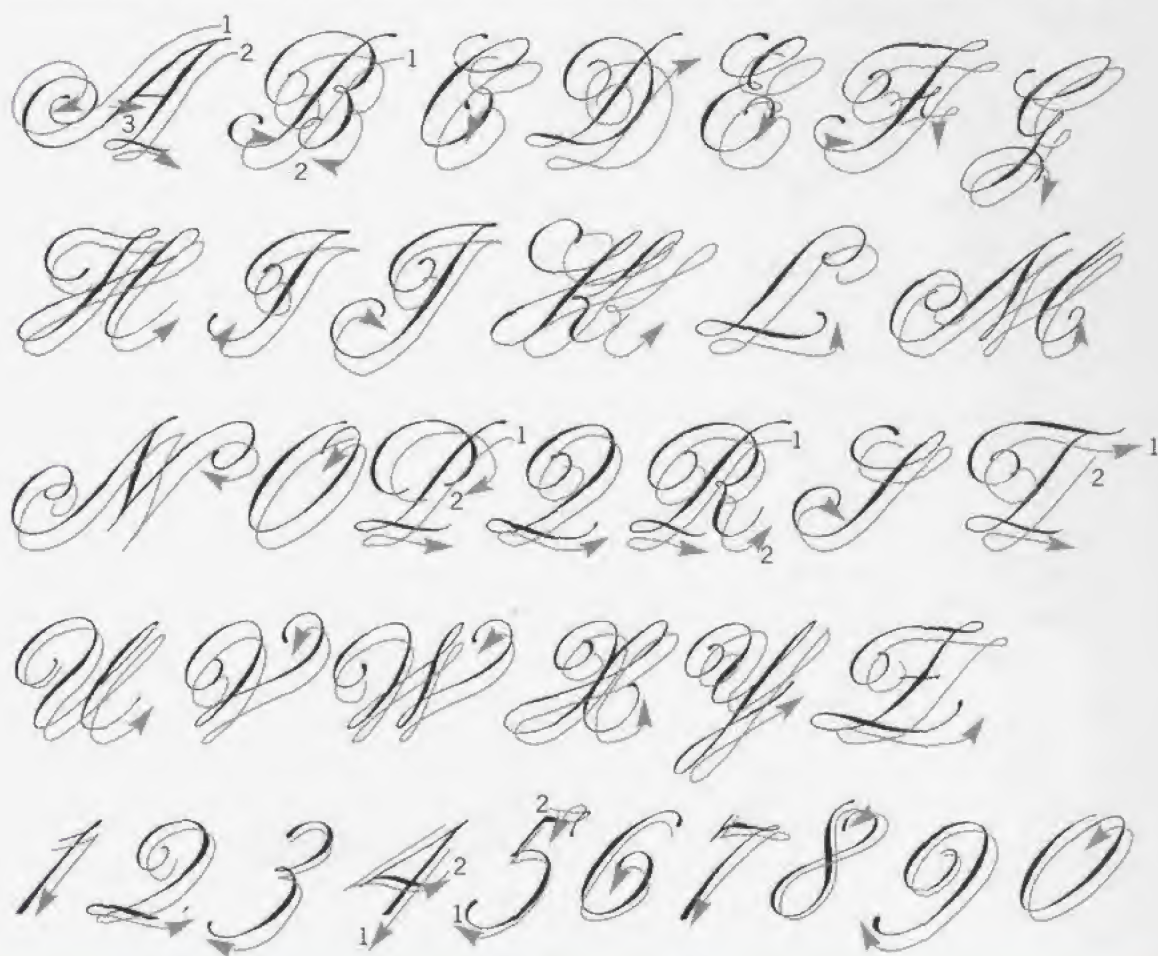 A B C D E F G
H I J K L M
N O P Q R S T
U V W X Y Z
1 2 3 4 5 6 7 8 9 0